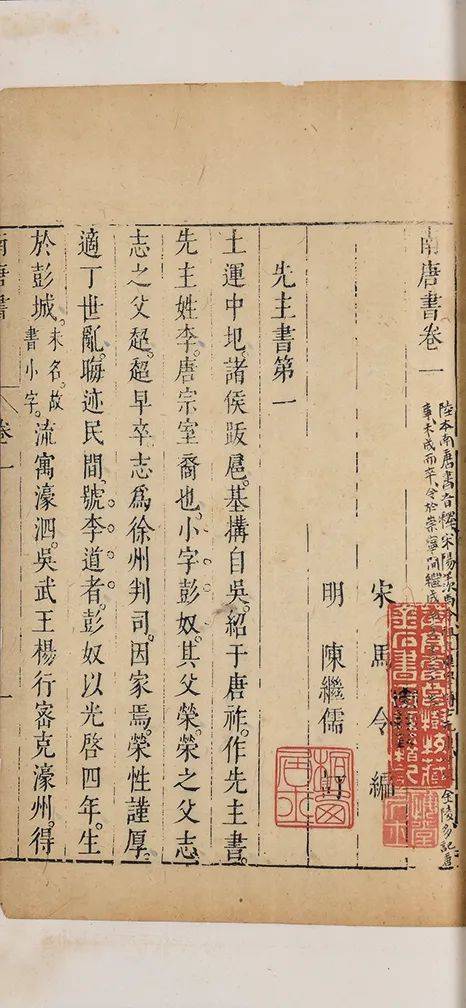 南唐書卷一
陸本南唐書音釋宋陽
未成而卒令於崇寧間繼成
宋馬令編
明陳繼儒訂
先主書第一
土運中圮。諸侯跋扈。基構自吳。紹于唐祚。作先主書。
先主姓李。唐宗室裔也。小字彭奴。其父榮。榮之父志
志之父超。超早卒。志爲徐州判司。因家焉。榮性謹厚。
適丁世亂。晦迹民間。號李道者。彭奴以光啓四年。生
於彭城。未名。故書小字。流寓濠泗。吳武王楊行密克濠州。得
南唐書 卷一 一